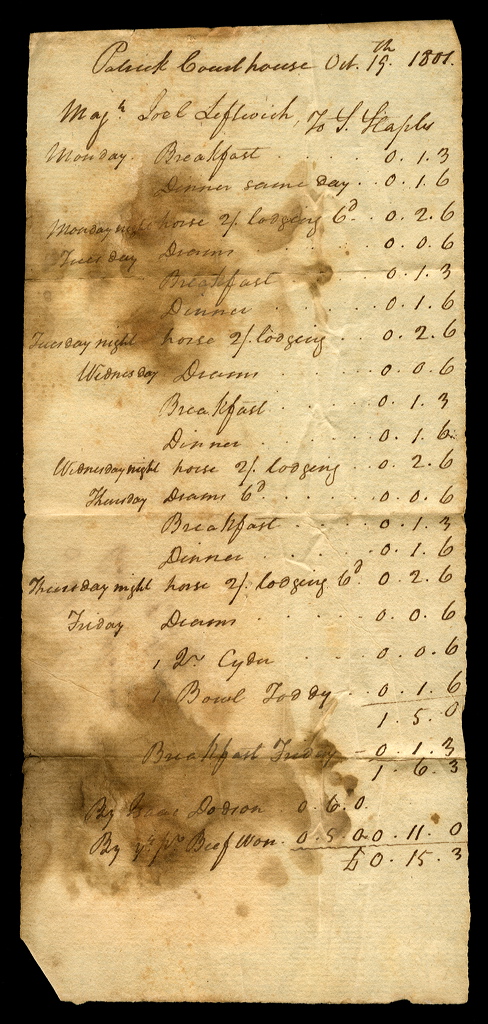 Patrick Courthouse Oct. 19th. 1801.
Majr. Joel Leftwich, To S. Staples
Monday Breakfast . . . . 0. 1. 3
Dinner same day . . 0. 1. 6
Monday night horse 2/. lodging 6d. . . 0. 2. 6
Tuesday Drams . . . . 0. 0. 6
Breakfast . . . . 0. 1. 3
Dinner . . . . 0. 1. 6
Tuesday night horse 2/. lodging . . 0. 2. 6
Wednesday Drams . . . . 0. 0. 6
Breakfast . . . . 0. 1. 3
Dinner . . . . 0. 1. 6
Wednesday night horse 2/. lodging . . 0. 2. 6
Thursday Drams 6d . . . . 0. 0. 6
Breakfast . . . . 0. 1. 3
Dinner . . . . 0. 1. 6
Thursday night horse 2/. lodging 6d. 0. 2. 6
Friday Drams . . . . 0. 0. 6
1 Qr. Cyder . . . 0. 0. 6
1 Bowl Toddy . . 0. 1. 6
1. 5. 0
Breakfast Friday - 0. 1. 3
1. 6. 3
By Isaac Dodson 0. 6. 0.
By yr. pr. Beef Won. 0. 5. 0 0. 11. 0
£0. 15. 3